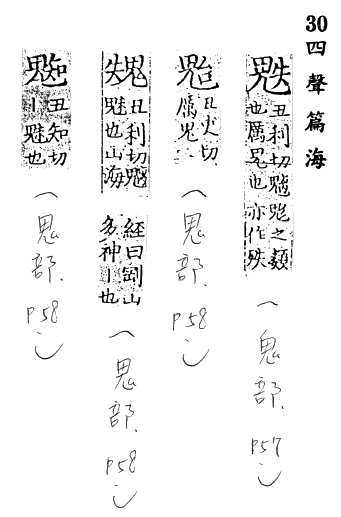 30 四聲篇海
䰡 丑利切魑之類
也厲鬼也亦作殃
(鬼部. P57.)
丑吏切
厲鬼
(鬼部. P58.)
丑利切魑
魅也山海
經曰剛山
多神丨也
(鬼部. P58.)
丑知切
丨魅也
(鬼部. P58.)